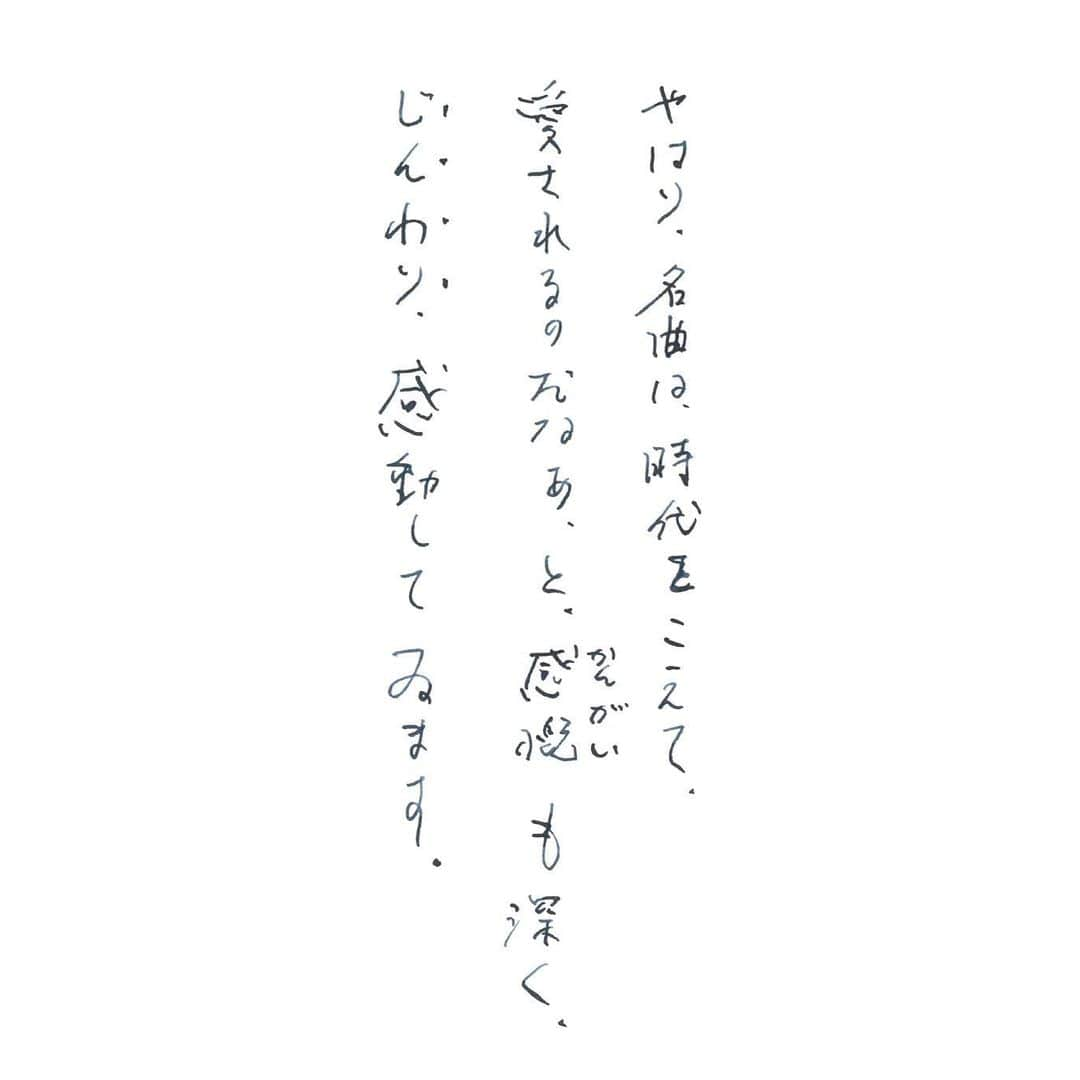 やはり、名曲は、時代をこえて、
愛されるのだなあ、と、感慨も深く、
かんがい
じんわり、感動してゐます。